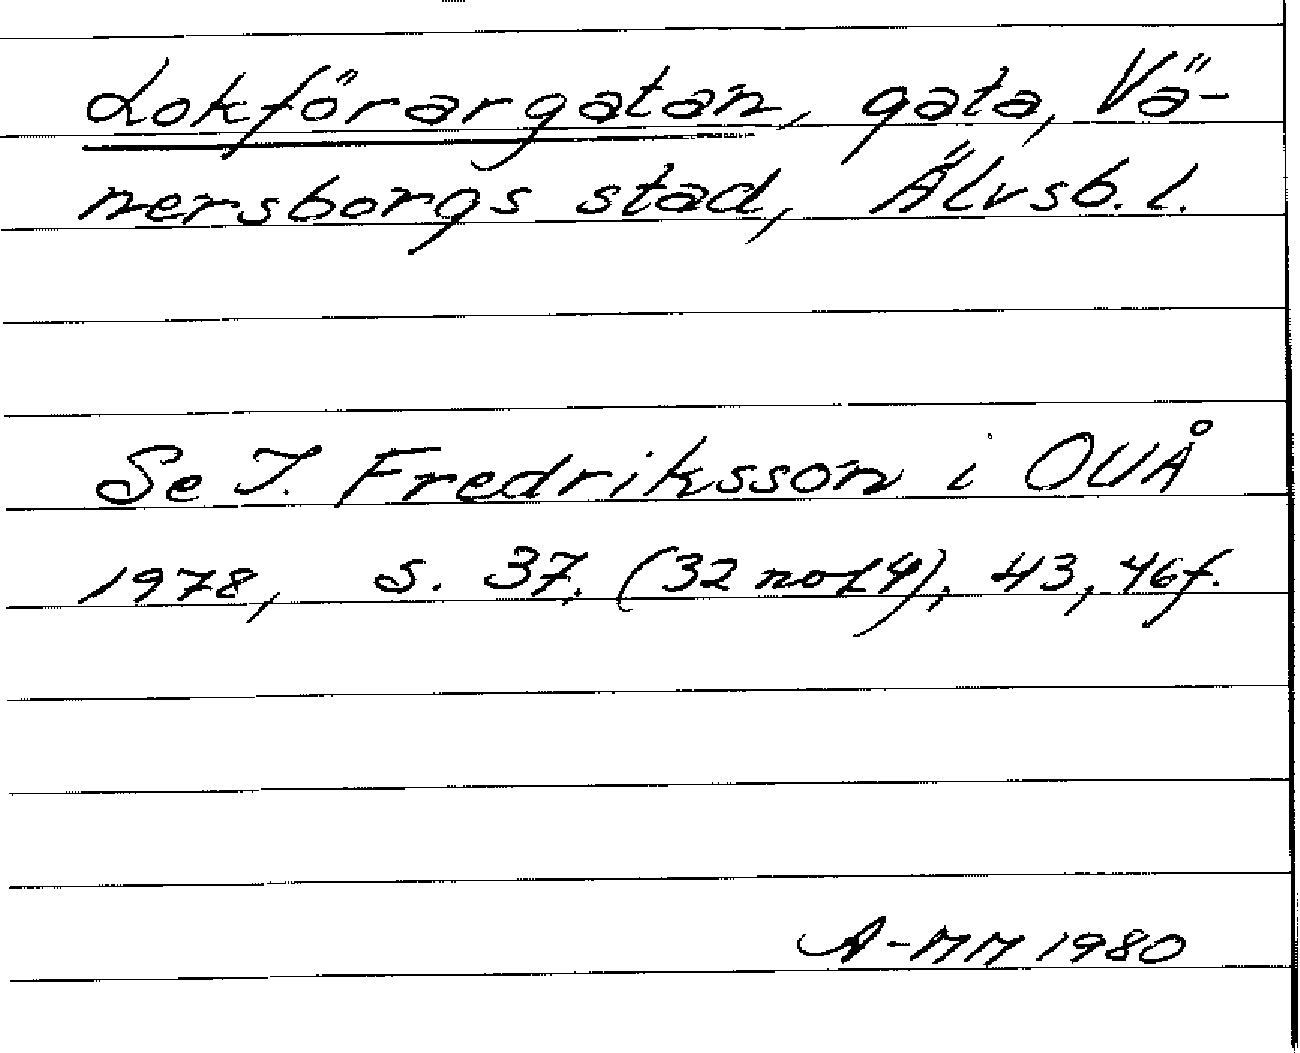 Lokförargatan, gata, Vä-
nersborgs stad, Älvsb. l.
Se I. Fredriksson i OUÅ
1978, s. 37, (32 not 4), 43, 46f.
A-MM 1980